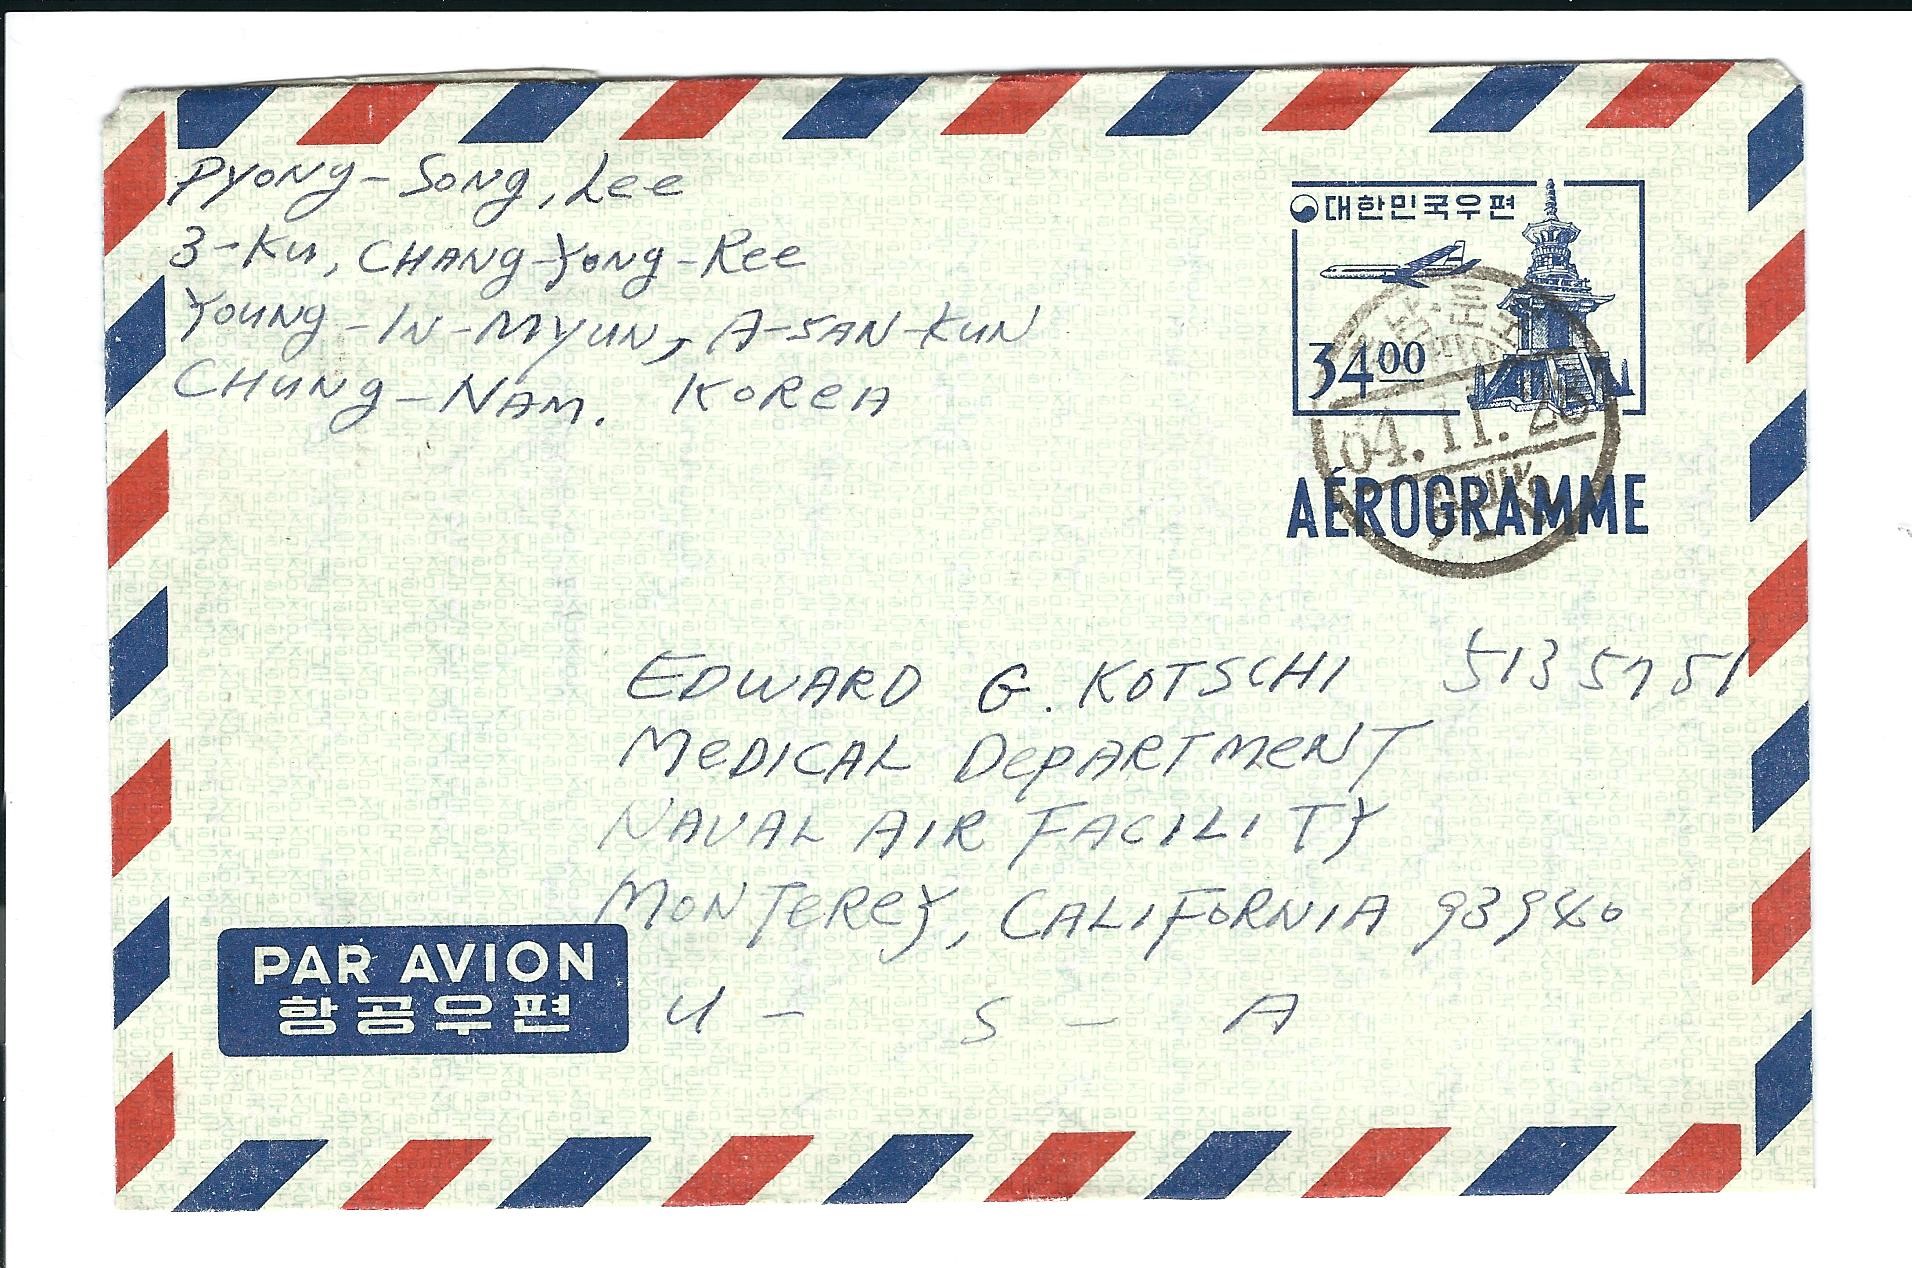 Pyong-Song, Lee
3-Ku, CHANG-Yong-Ree
Young-IN-Myun, A-SAN-KUN
CHUNg-NAM. KOREA
대한민국우편
34 00
AÉROGRAMME
EDWARD G. KOTSCHI 5135751
MeDICAL DePARTMeNT
NAVAL AIR FACILITY
MONTEREY, CALIFORNIA 93940
U - S - A
PAR AVION
항공우편